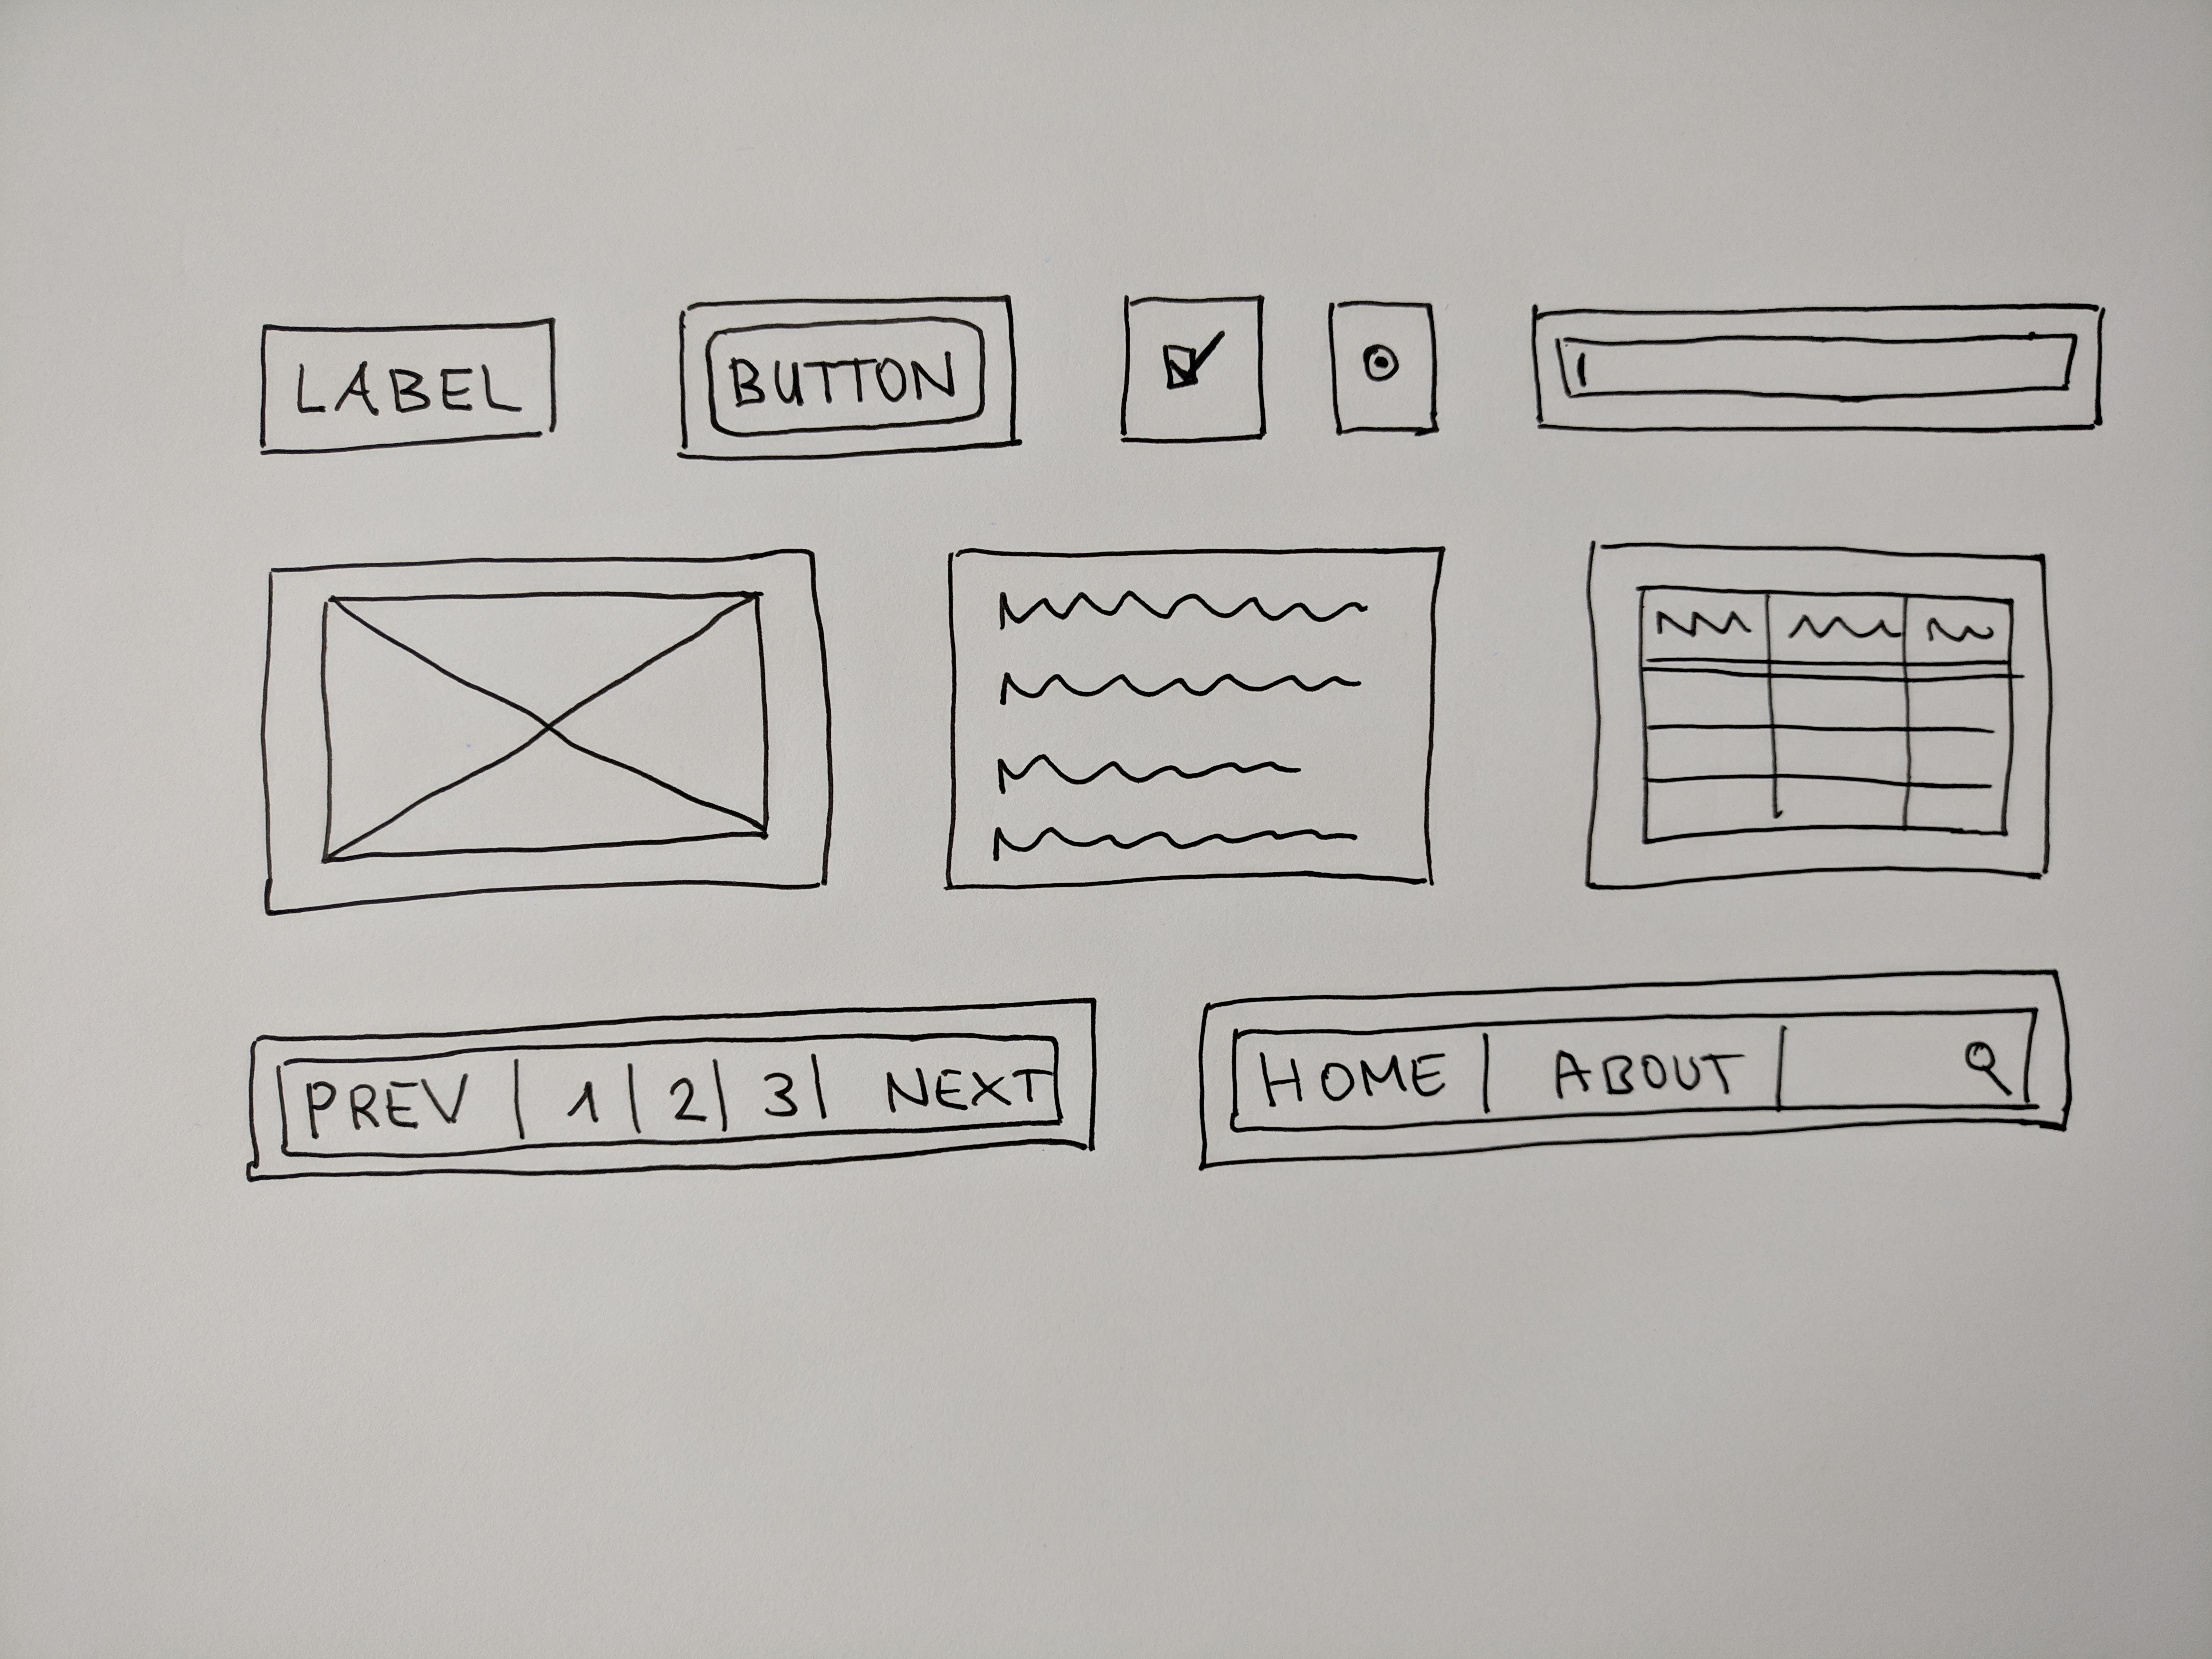 LABEL
BUTTON
PREV | 1 | 2 | 3 | NEXT
HOME | ABOUT |